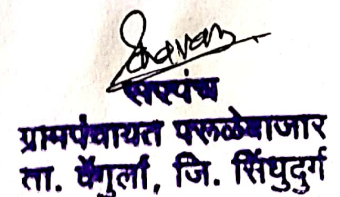 सरपंच
ग्रामपंचायत परूळेबाजार
ता. वेंगुर्ला, जि. सिंधुदुर्ग